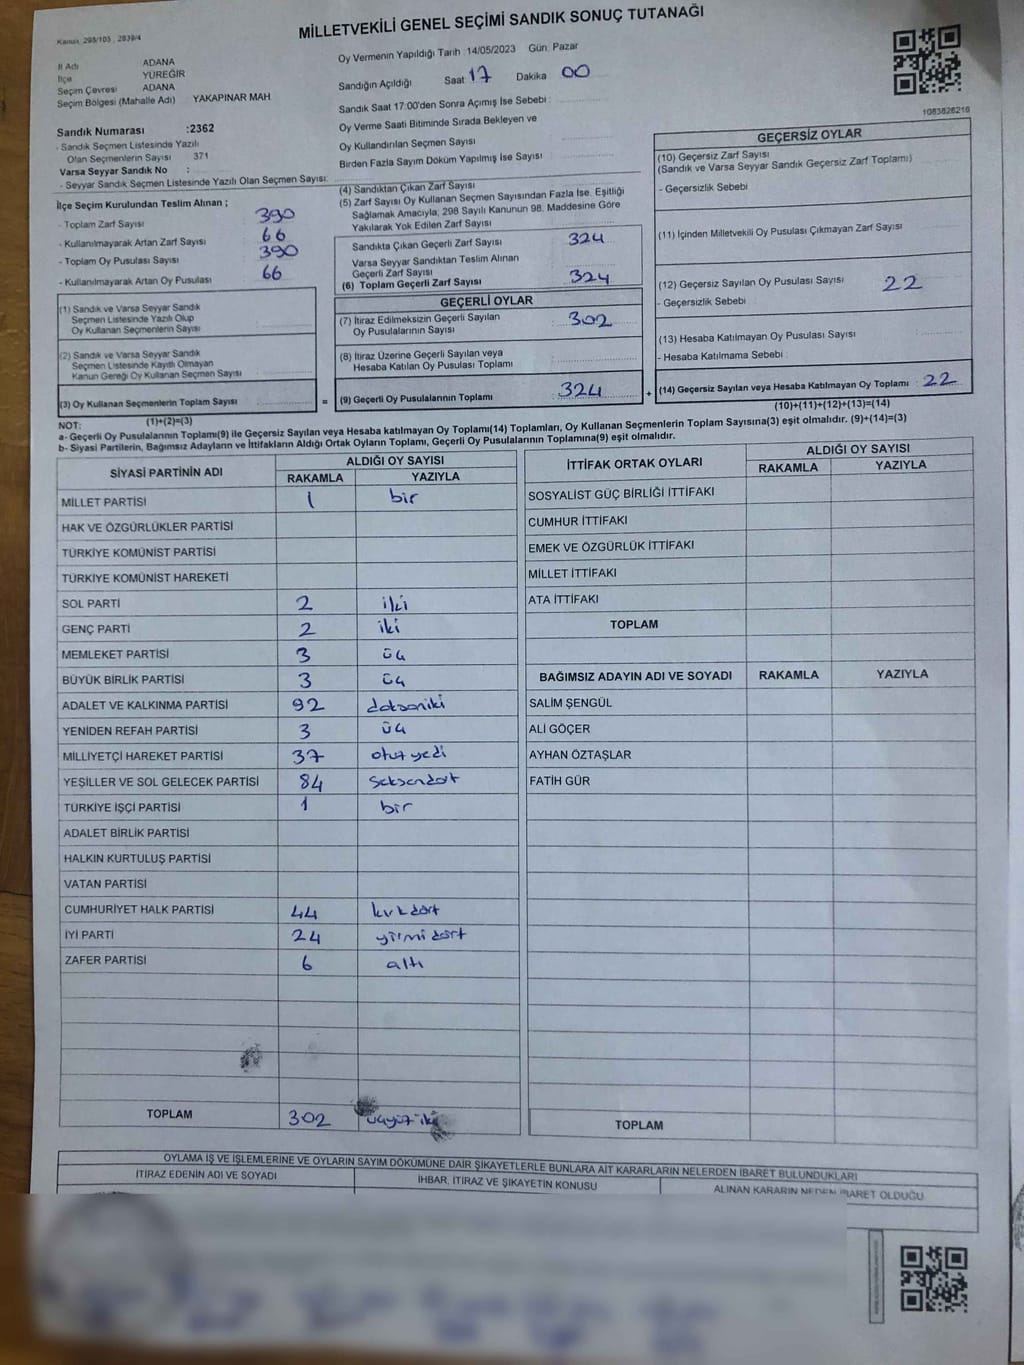 MİLLETVEKİLİ GENEL SEÇİMİ SANDIK SONUÇ TUTANAĞI
Kanun, 298/105 , 2839/4
İl Adı ADANA
İlçe YÜREĞİR
Seçim Çevresi ADANA
Seçim Bölgesi (Mahalle Adı) YAKAPINAR MAH
Sandık Numarası :2362
- Sandık Seçmen Listesinde Yazılı
Olan Seçmenlerin Sayısı 371
Varsa Seyyar Sandık No :
- Seyyar Sandık Seçmen Listesinde Yazılı Olan Seçmen Sayısı:
Oy Vermenin Yapıldığı Tarih :14/05/2023 Gün: Pazar
Sandığın Açıldığı Saat 17 Dakika 00
Sandık Saat 17:00'den Sonra Açımış İse Sebebi :
Oy Verme Saati Bitiminde Sırada Bekleyen ve
Oy Kullandırılan Seçmen Sayısı :
Birden Fazla Sayım Döküm Yapılmış İse Sayısı :
1083826216
İlçe Seçim Kurulundan Teslim Alınan ;
- Toplam Zarf Sayısı 390
- Kullanılmayarak Artan Zarf Sayısı 66
- Toplam Oy Pusulası Sayısı 390
- Kullanılmayarak Artan Oy Pusulası 66
(1) Sandık ve Varsa Seyyar Sandık
Seçmen Listesinde Yazılı Olup
Oy Kullanan Seçmenlerin Sayısı :
(2) Sandık ve Varsa Seyyar Sandık
Seçmen Listesinde Kayıtlı Olmayan
Kanun Gereği Oy Kullanan Seçmen Sayısı :
(3) Oy Kullanan Seçmenlerin Toplam Sayısı : =
(1)+(2)=(3)
(4) Sandıktan Çıkan Zarf Sayısı
(5) Zarf Sayısı Oy Kullanan Seçmen Sayısından Fazla İse, Eşitliği
Sağlamak Amacıyla, 298 Sayılı Kanunun 98. Maddesine Göre
Yakılarak Yok Edilen Zarf Sayısı :
Sandıkta Çıkan Geçerli Zarf Sayısı 324
Varsa Seyyar Sandıktan Teslim Alınan
Geçerli Zarf Sayısı
(6) Toplam Geçerli Zarf Sayısı 324
GEÇERLİ OYLAR
(7) İtiraz Edilmeksizin Geçerli Sayılan
Oy Pusulalarının Sayısı : 302
(8) İtiraz Üzerine Geçerli Sayılan veya
Hesaba Katılan Oy Pusulası Toplamı :
(9) Geçerli Oy Pusulalarının Toplamı : 324 +
GEÇERSİZ OYLAR
(10) Geçersiz Zarf Sayısı
(Sandık ve Varsa Seyyar Sandık Geçersiz Zarf Toplamı)
- Geçersizlik Sebebi
(11) İçinden Milletvekili Oy Pusulası Çıkmayan Zarf Sayısı
(12) Geçersiz Sayılan Oy Pusulası Sayısı 22
- Geçersizlik Sebebi
(13) Hesaba Katılmayan Oy Pusulası Sayısı
- Hesaba Katılmama Sebebi :
(14) Geçersiz Sayılan veya Hesaba Katılmayan Oy Toplamı : 22
(10)+(11)+(12)+(13)=(14)
NOT:
a- Geçerli Oy Pusulalarının Toplamı(9) ile Geçersiz Sayılan veya Hesaba katılmayan Oy Toplamı(14) Toplamları, Oy Kullanan Seçmenlerin Toplam Sayısına(3) eşit olmalıdır. (9)+(14)=(3)
b- Siyasi Partilerin, Bağımsız Adayların ve İttifakların Aldığı Ortak Oyların Toplamı, Geçerli Oy Pusulalarının Toplamına(9) eşit olmalıdır.
SİYASİ PARTİNİN ADI ALDIĞI OY SAYISI
RAKAMLA YAZIYLA
MİLLET PARTİSİ 1 bir
HAK VE ÖZGÜRLÜKLER PARTİSİ
TÜRKİYE KOMÜNİST PARTİSİ
TÜRKİYE KOMÜNİST HAREKETİ
SOL PARTİ 2 iki
GENÇ PARTİ 2 iki
MEMLEKET PARTİSİ 3 üç
BÜYÜK BİRLİK PARTİSİ 3 üç
ADALET VE KALKINMA PARTİSİ 92 doksaniki
YENİDEN REFAH PARTİSİ 3 üç
MİLLİYETÇİ HAREKET PARTİSİ 37 otuz yedi
YEŞİLLER VE SOL GELECEK PARTİSİ 84 seksendört
TÜRKİYE İŞÇİ PARTİSİ 1 bir
ADALET BİRLİK PARTİSİ
HALKIN KURTULUŞ PARTİSİ
VATAN PARTİSİ
CUMHURİYET HALK PARTİSİ 44 kırkdört
İYİ PARTİ 24 yirmi dört
ZAFER PARTİSİ 6 altı
TOPLAM 302 üçyüz iki
İTTİFAK ORTAK OYLARI ALDIĞI OY SAYISI
RAKAMLA YAZIYLA
SOSYALİST GÜÇ BİRLİĞİ İTTİFAKI
CUMHUR İTTİFAKI
EMEK VE ÖZGÜRLÜK İTTİFAKI
MİLLET İTTİFAKI
ATA İTTİFAKI
TOPLAM
BAĞIMSIZ ADAYIN ADI VE SOYADI RAKAMLA YAZIYLA
SALİM ŞENGÜL
ALİ GÖÇER
AYHAN ÖZTAŞLAR
FATİH GÜR
TOPLAM
OYLAMA İŞ VE İŞLEMLERİNE VE OYLARIN SAYIM DÖKÜMÜNE DAİR ŞİKAYETLERLE BUNLARA AİT KARARLARIN NELERDEN İBARET BULUNDUKLARI
İTİRAZ EDENİN ADI VE SOYADI İHBAR, İTİRAZ VE ŞİKAYETİN KONUSU ALINAN KARARIN NEDEN İBARET OLDUĞU